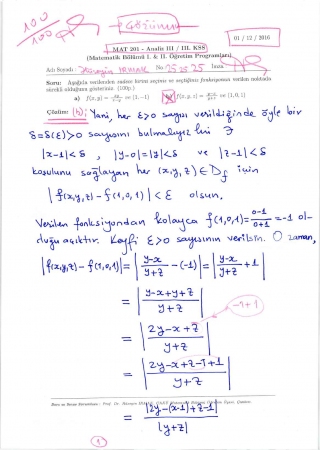 100
100
Çözümü
01 / 12 / 2016
MAT 201 - Analiz III / III. KSS
(Matematik Bölümü I. & II. Öğretim Programları)
Adı Soyadı : No : 252525 İmza :
Soru: Aşağıda verilenlerden sadece birini seçiniz ve seçtiğiniz fonksiyonun verilen noktada sürekli olduğunu gösteriniz. (100p.)
a) f(x, y) = ve (1, −1) f(x, y, z) = (y−x)/(y+z) ve (1, 0, 1)
Çözüm: (b) Yani, her ε>0 sayısı verildiğinde öyle bir
δ=δ(ε)>0 sayısını bulmalıyız ki
|x-1|<δ , |y-0|=|y|<δ ve |z-1|<δ
koşulunu sağlayan her (x,y,z)∈D_f için
|f(x,y,z)-f(1,0,1)|<ε olsun.
Verilen fonksiyondan kolayca f(1,0,1)=(0-1)/(0+1)=-1 ol-
duğu açıktır. Keyfi ε>0 sayısının verilsin. O zaman,
|f(x,y,z)-f(1,0,1)|=|(y-x)/(y+z) -(-1)|=|(y-x)/(y+z) +1|
=|(y-x+y+z)/(y+z)|
=|(2y-x+z)/(y+z)| -1+1
=|(2y-x+z-1+1)/(y+z)|
=|2y-(x-1)+z-1|/|y+z|
1